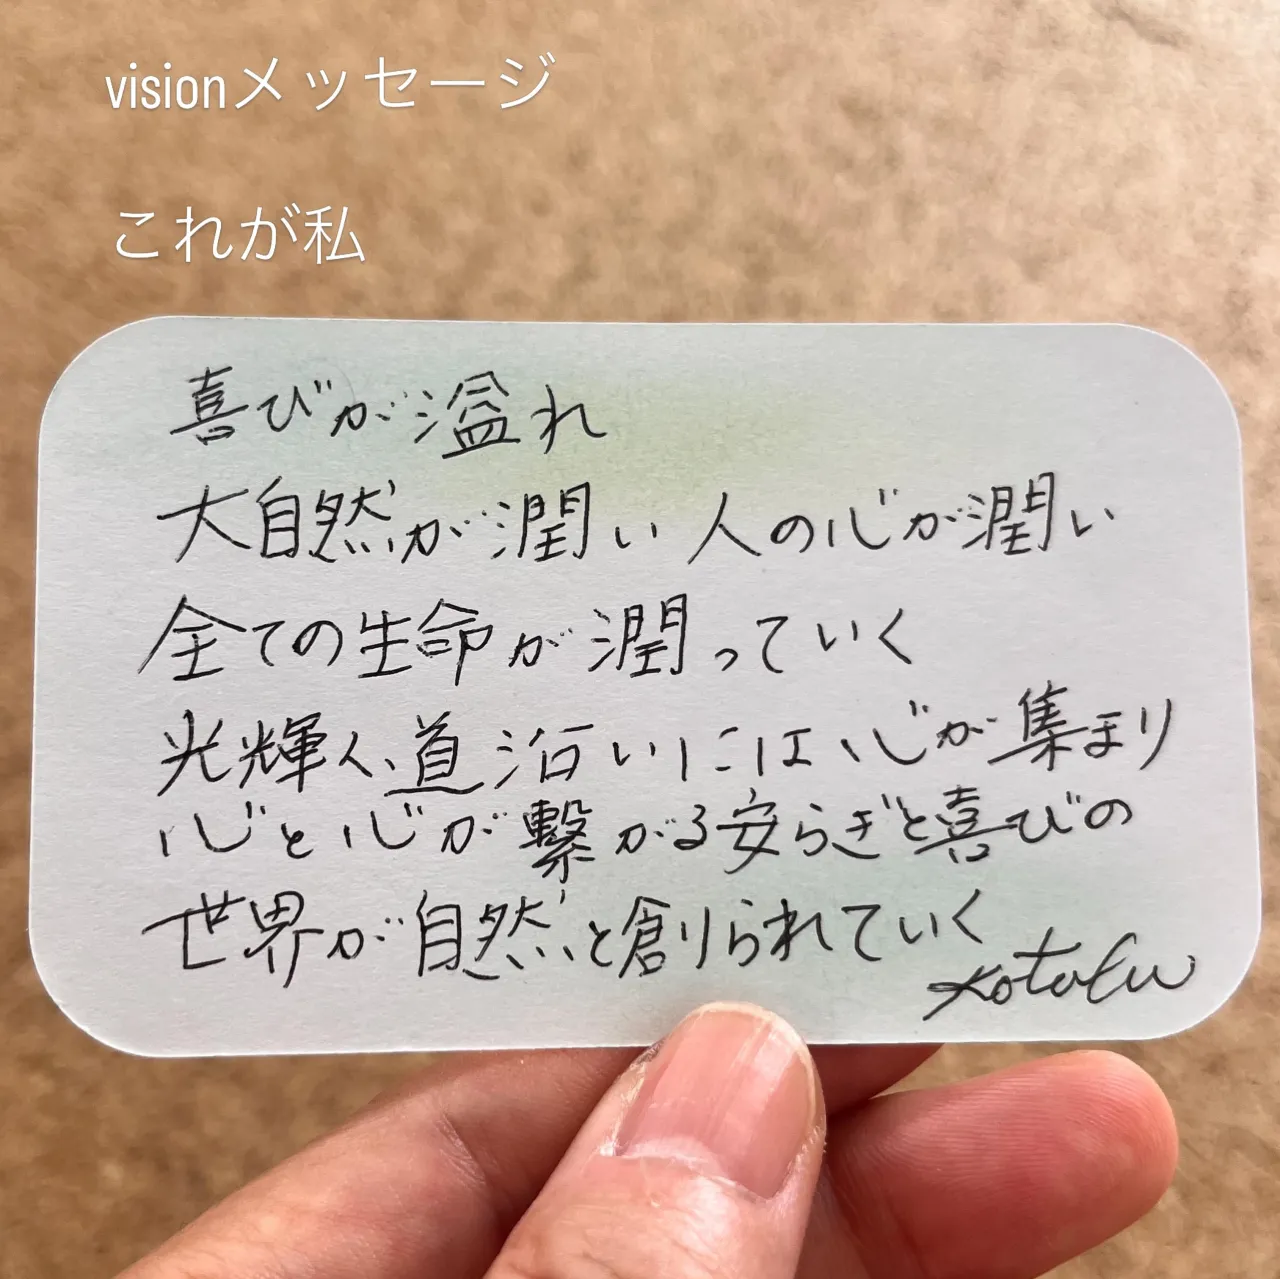 visionメッセージ
これが私
喜びが溢れ
大自然が潤い 人の心が潤い
全ての生命が潤っていく
光輝く、道沿いには心が集まり
心と心が繋がる安らぎと喜びの
世界が自然と創りられていく